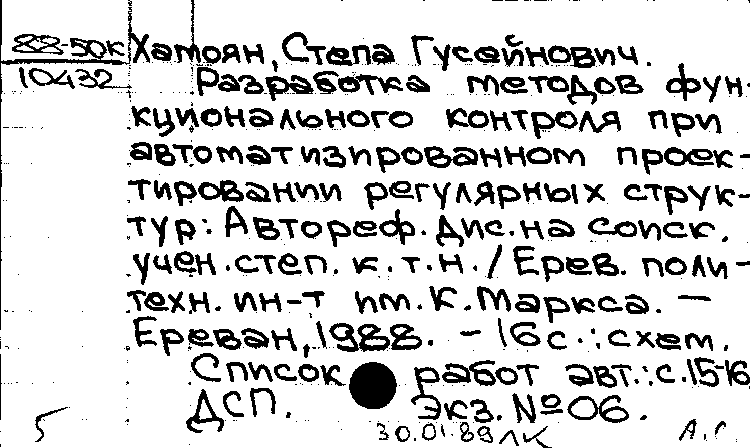 88-50К Хамоян, Степа Гусейнович.
10432 Разработка методов фун-
кционального контроля при
автоматизированном проек-
тировании регулярных струк-
тур: Автореф. дис. на соиск.
учен. степ. к. т. н. / Ерев. поли-
техн. ин-т им. К. Маркса. —
Ереван, 1988. - 16 с.: схем.
Список работ авт.: с. 15-16
ДСП. Экз. №06.
5 30.01.89